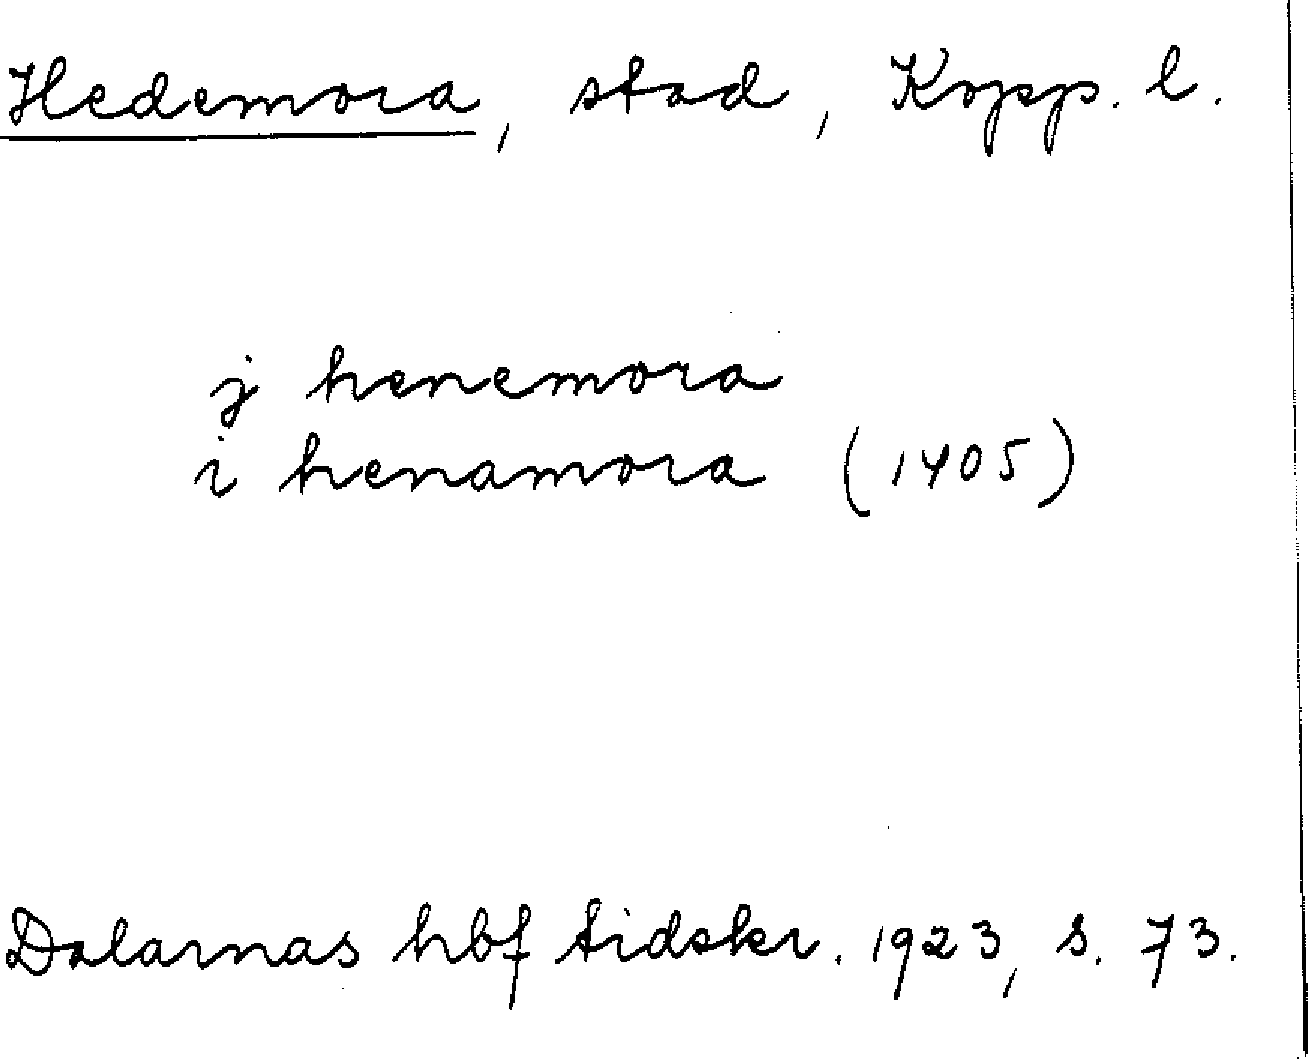 Hedemora, stad, Kopp. l.
j henemora
i henamora (1405)
Dalarnas hbf tidskr. 1923, s. 73.